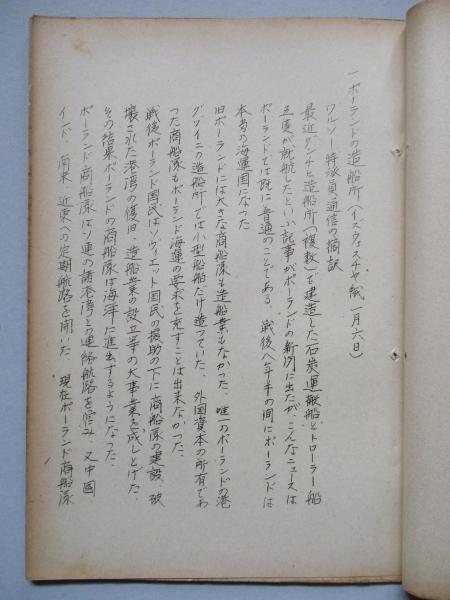 一 ポーランドの造船所(イズヴェスチヤ紙一月六日)
ワルソー特派員通信の摘訳
最近グダンチヒ造船所(複数)で建造した石炭運搬船とトローラー船
五隻が就航したといふ記事がポーランドの新聞に出たがこんなニュースは
ポーランドでは既に普通のことである、戦後八年半の間にポーランドは
本当の海運国になった
旧ポーランドには大きな商船隊も造船業もなかった、唯一のポーランドの港
グヅイニヤ造船所では小型船舶だけ造っていた、外国資本の所有であ
った商船隊もポーランド海運の要求を充すことは出来なかった。
戦後ポーランド国民はソヴィエット国民の援助の下に商船隊の建設、破
壊された港湾の復旧、造船業の設立等の大事業を成しとげた、
その結果ポーランドの商船隊は海洋に進出するようになった。
ポーランド商船隊はソ連の諸港湾との連絡航路を営み 又中国、
インド、南米、近東への定期航路を開いた。現在ポーランド商船隊